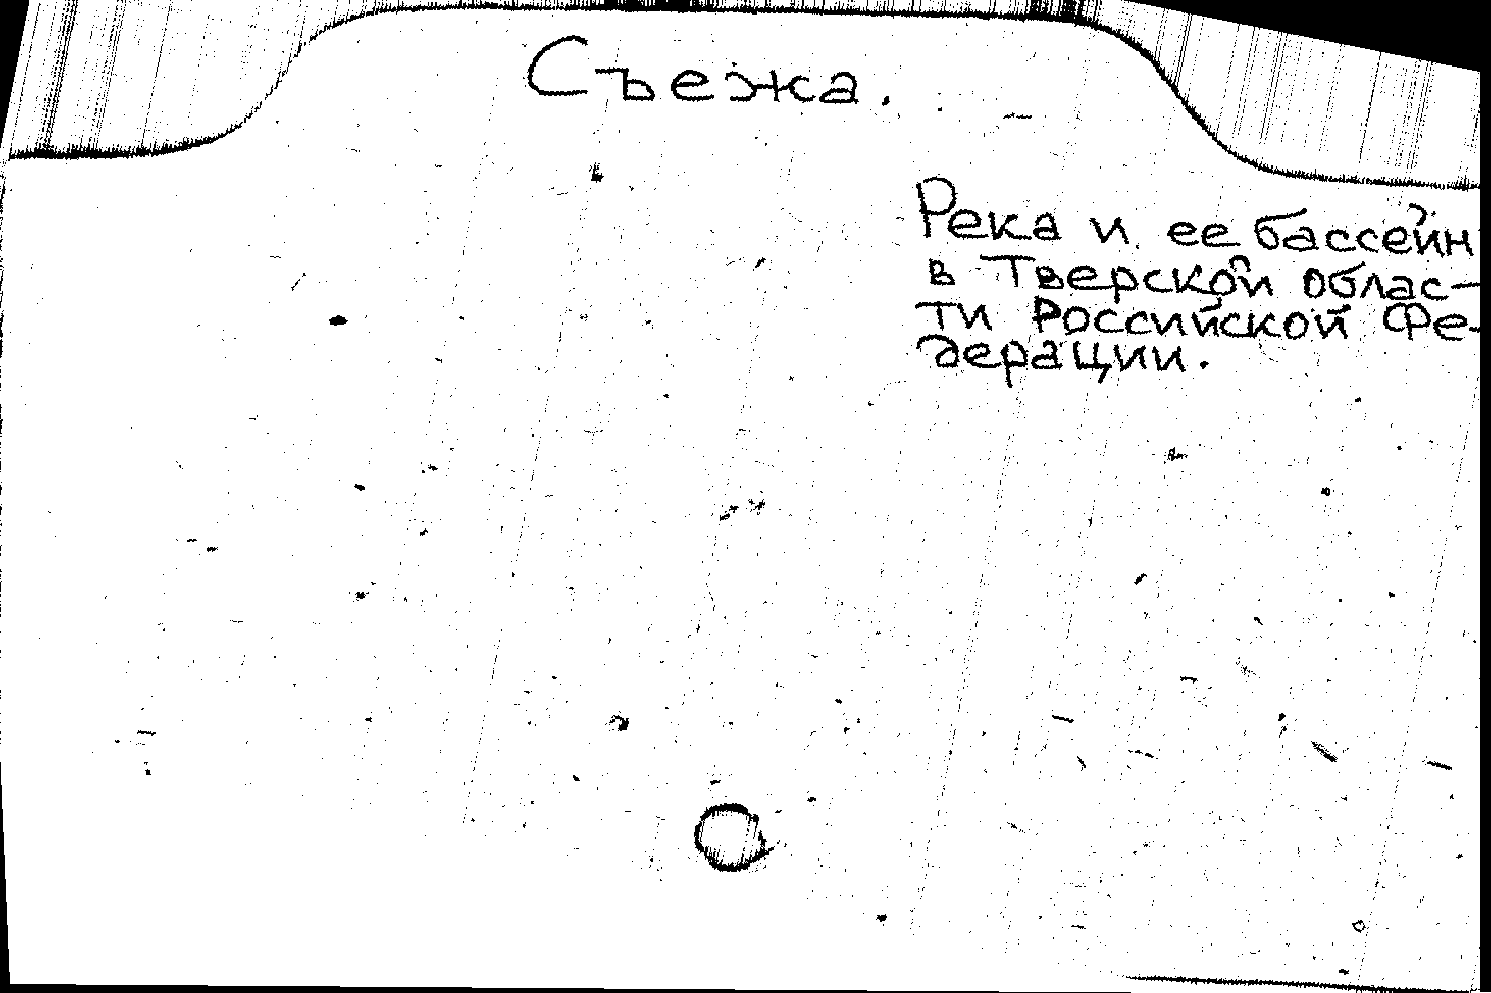 Съежа.
Река и ее бассейн
в Тверской облас-
ти Российской Фе-
дерации.